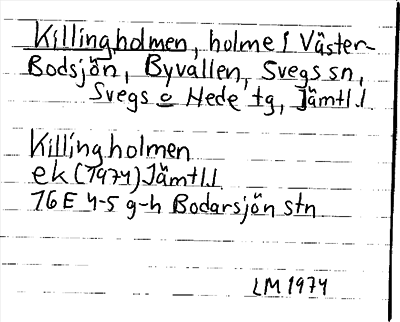 Killingholmen, holme i Väster-
Bodsjön, Byvallen, Svegs sn,
Svegs o Hede tg, Jämtl.l
Killingholmen
ek (1974) Jämtl.l
16E 4-5 g-h Bodarsjön stn
LM 1974